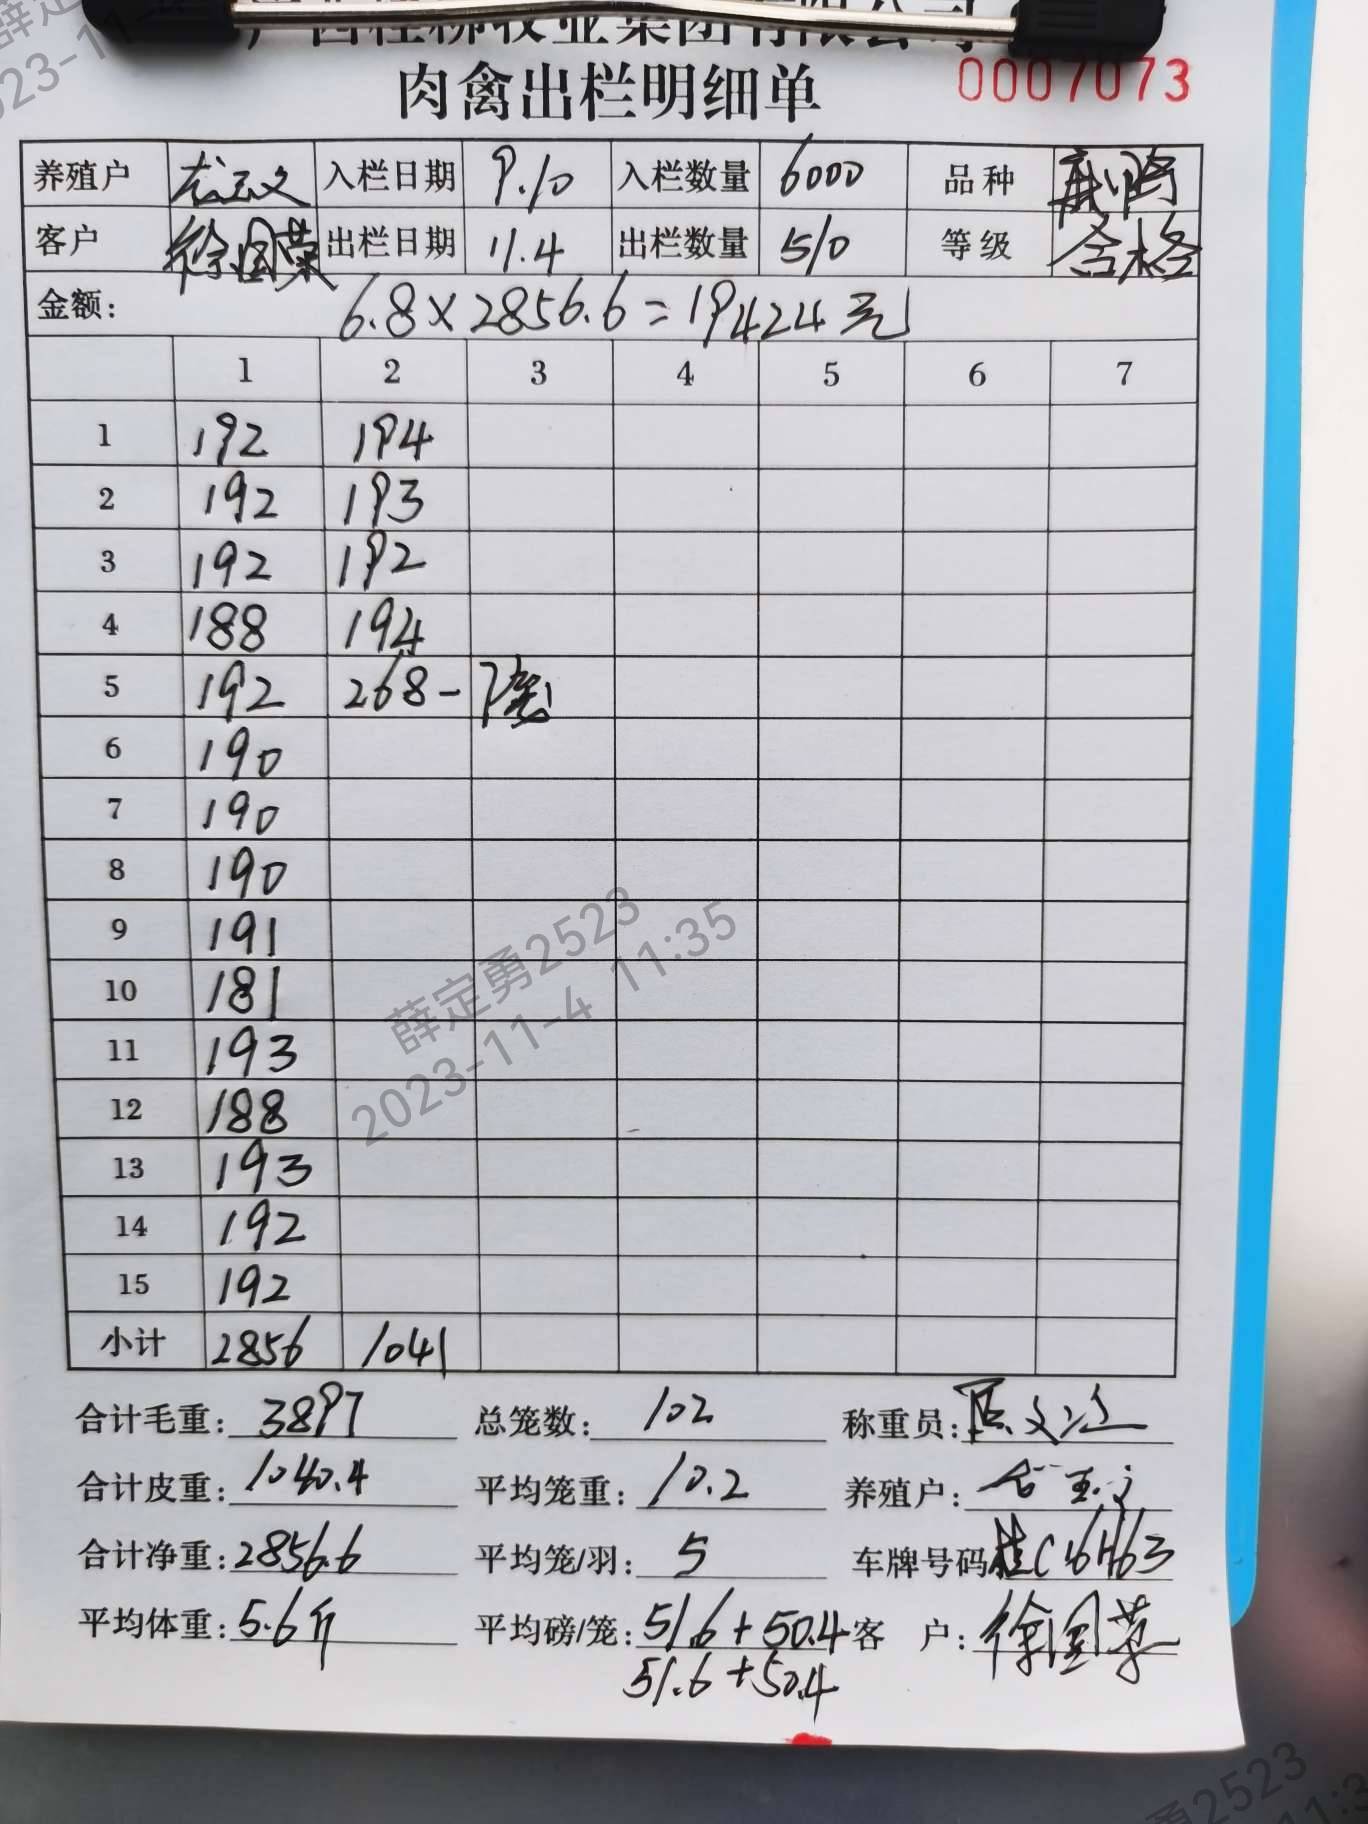 广西桂柳牧业集团有限公司
肉禽出栏明细单 0007073
养殖户 入栏日期 9.10 入栏数量 6000 品种
客户 徐国荣 出栏日期 11.4 出栏数量 510 等级 合格
金额: 6.8×2856.6=19424元
1 2 3 4 5 6 7
1 192 194
2 192 193
3 192 192
4 188 194
5 192 268-7笼
6 190
7 190
8 190
9 191
10 181
11 193
12 188
13 193
14 192
15 192
小计 2856 1041
合计毛重: 3897 总笼数: 102 称重员:
合计皮重: 1040.4 平均笼重: 10.2 养殖户:
合计净重: 2856.6 平均笼/羽: 5 车牌号码 桂C16H63
平均体重: 5.6斤 平均磅/笼: 51.6+50.4 客 户: 徐国荣
51.6+50.4
薛定勇2523
2023-11-4 11:35